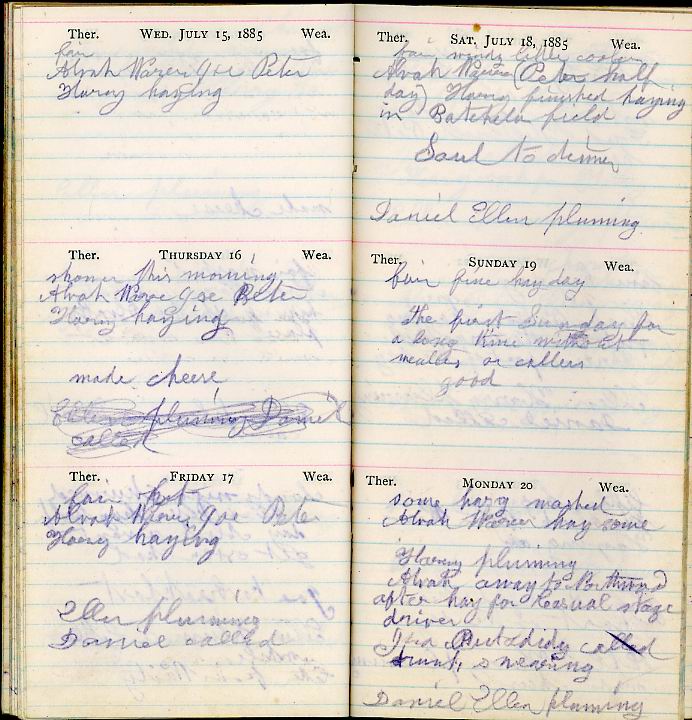 Ther. WED. JULY 15, 1885 Wea.
fair
Alvah Joe Peter
Harry haying
Ther. THURSDAY 16 Wea.
shower this morning
Alvah Joe Peter
Harry haying
made cheese
Ellen pluming Daniel
called
Ther. FRIDAY 17 Wea.
fair hot
Alvah Joe Peter
Harry haying
Ellen pluming
Daniel called
Ther. SAT. JULY 18, 1885 Wea.
fair windy little cooler
Alvah (Peter half
day) Harry finished haying
in Batchelor field
to dinner
Daniel Ellen pluming
Ther. SUNDAY 19 Wea.
fair fine hay day
The first Sunday for
a long time without
mealers or callers
good
Ther. MONDAY 20 Wea.
some hazy washed
Alvah hay some
Harry pluming
Alvah away to Northwood
after hay for stage
driver
Ira called
drunk, swearing
Daniel Ellen pluming